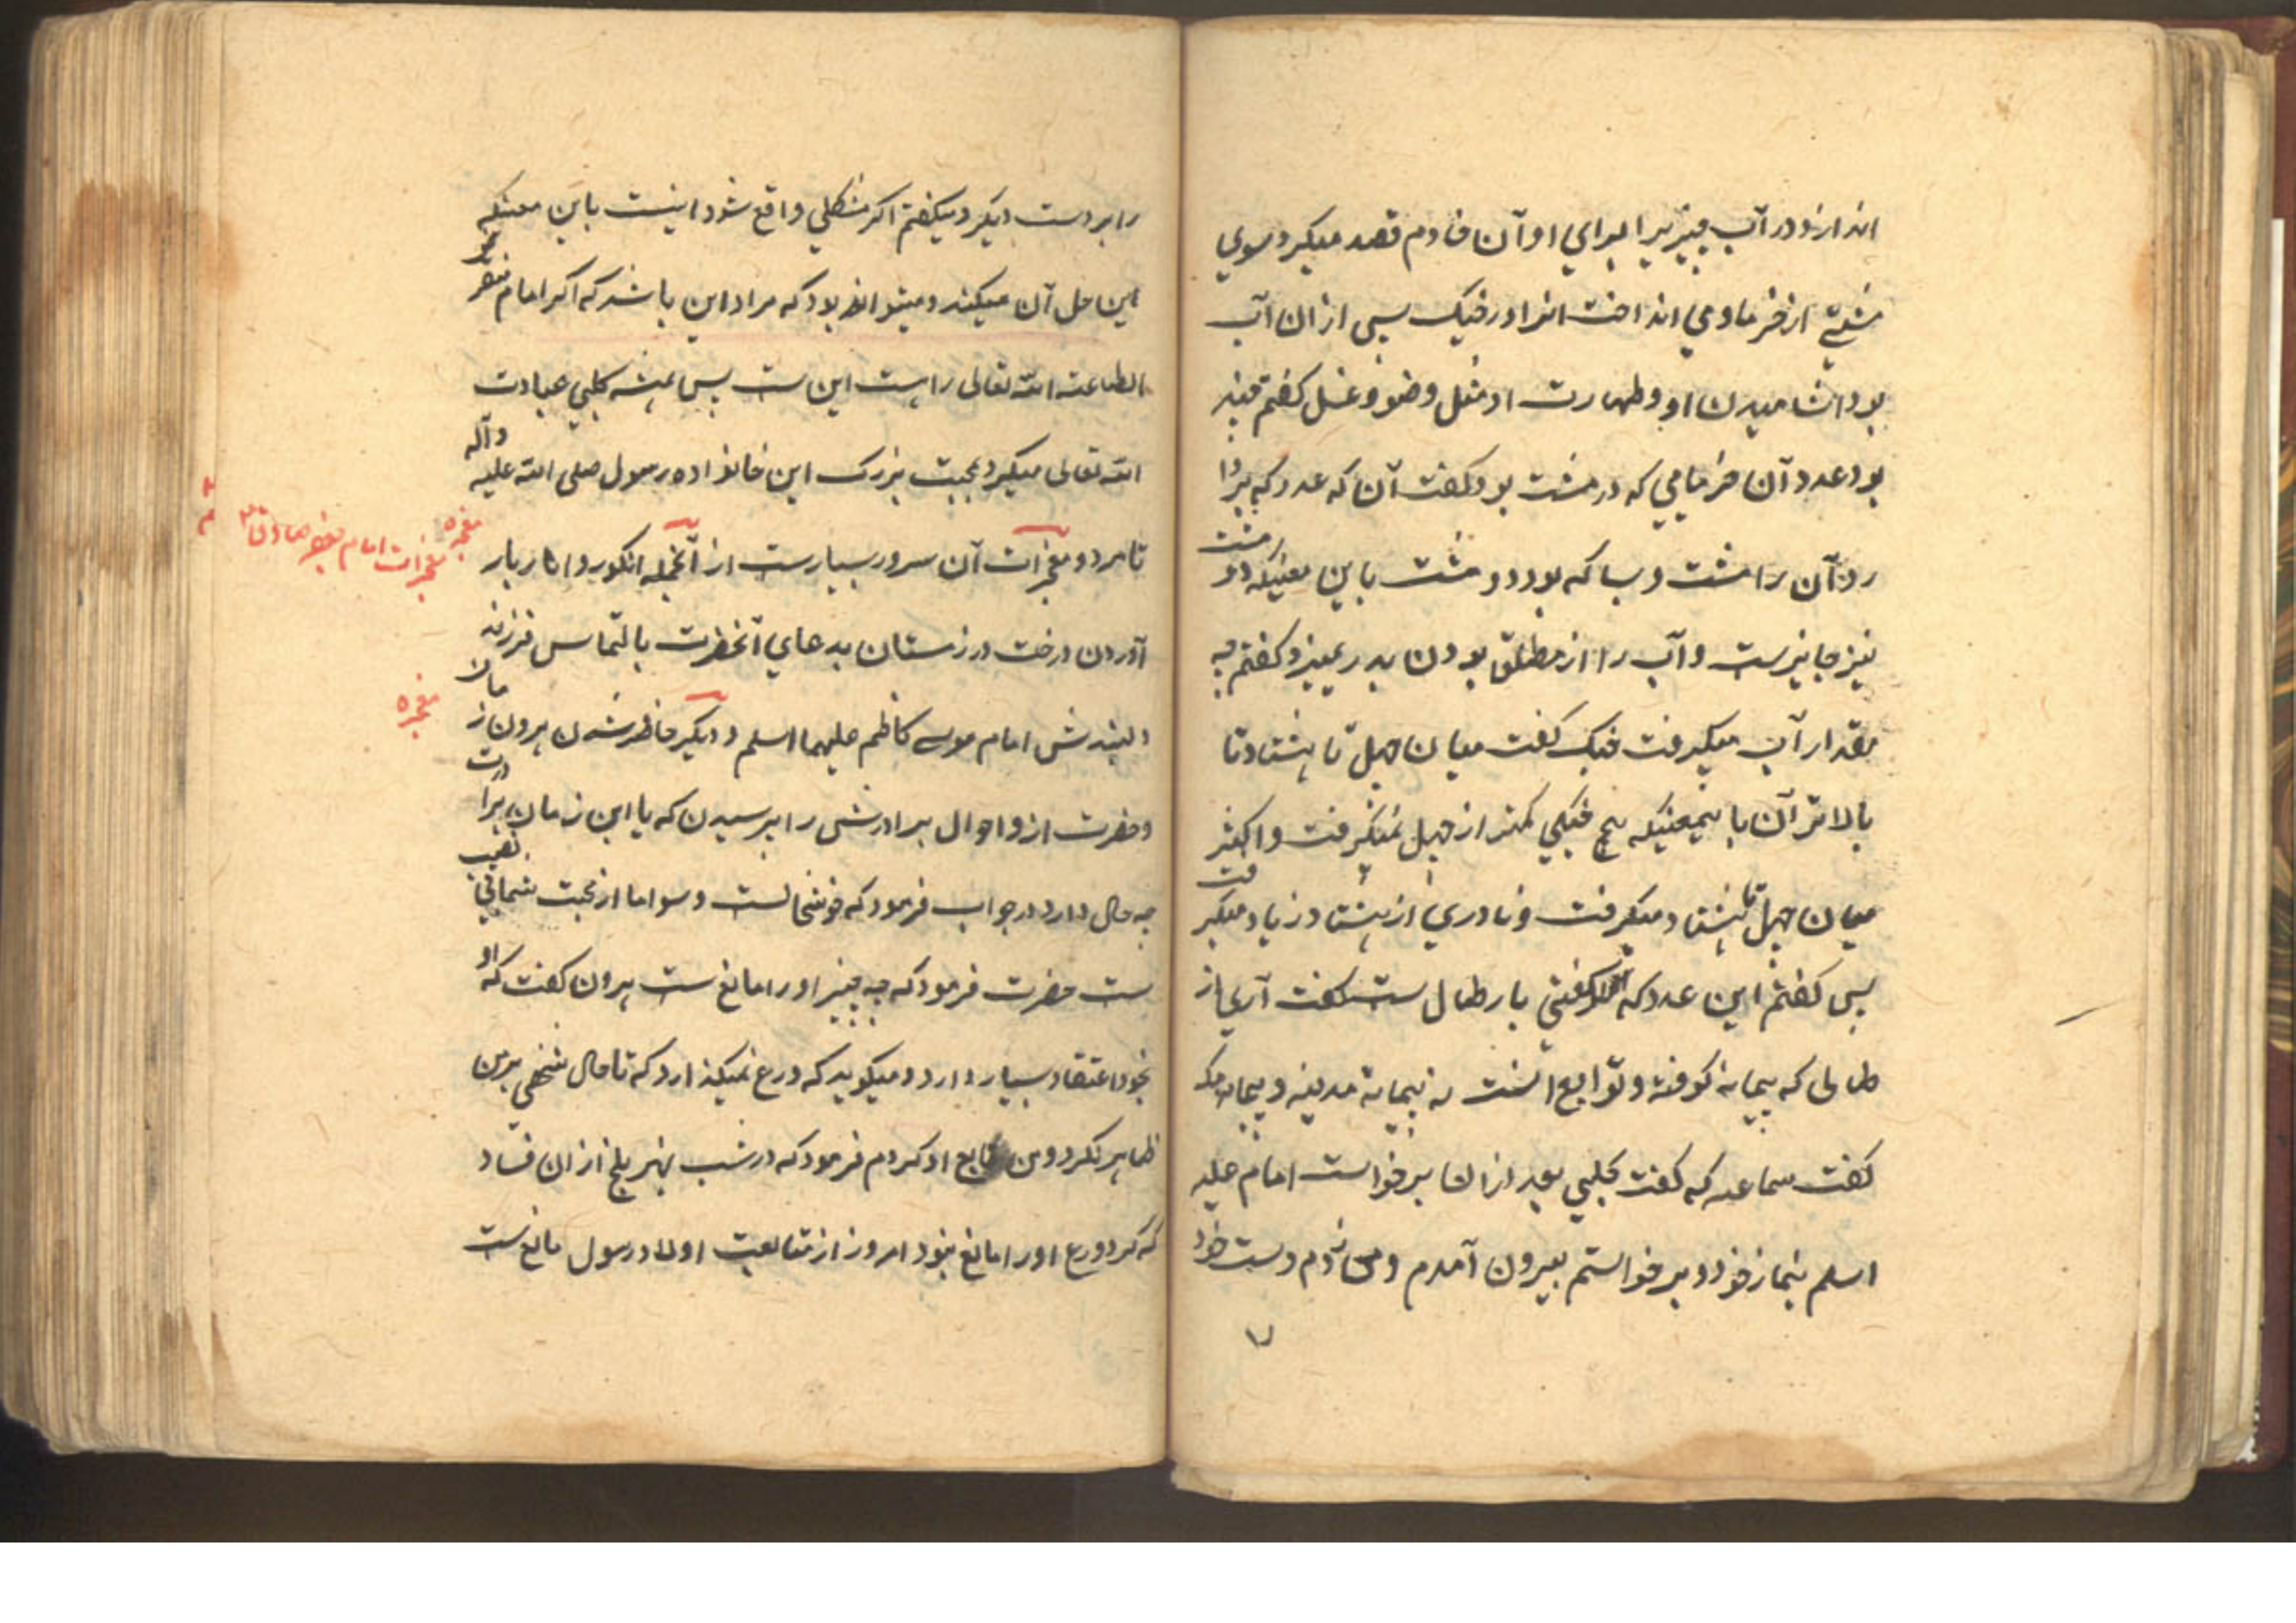 اندازند در آب چیزیرا برای او آن خادم قصد میکرد سوی
مشتی از خرما و می انداخت انرا در خیک پس از ان آب
بود اشامیدن او و طهارت او مثل وضو و غسل کفتم چند
بود عدد آن خرمایی که در مشت بود کفت آن که عدد که پر
رد آن را مشت و بسا که بود دو مشت باین معنیکه دو مشت
نیز جایزست و آب را از مطلق بودن بدر نمیبرد کفتم چه
مقدار آب میکرفت خیک کفت میان چهل تا هشتاد تا
بالاتر آن باینمعنیکه هیچ خیکی کمتر از چهل نمیکرفت و اکثر
میان چهل تا هشتاد میکرفت و نادری از هشتاد زیاد میکرفت
پس کفتم این عدد که کفتی بارطال ست کفت آری از
طالی که پیمانه کوفه و توابع انست نه پیمانه مدینه و پیمانه مکه
کفت سماعه که کفت کلبی بعد از ان برخواست امام علیه
اسلم بنماز خود و برخواستم بیرون آمدم و میزدم دست خود
را بر دست دیکر و میکفتم اکر مشکلی واقع شود اینست باین معنیکه
این حل آن میکند و میتواند بود که مراد این باشد که اکر امام مفترض
الطاعته الله تعالی را هست این ست پس همیشه کلبی عبادت
الله تعالی میکرد بمحبت بزرک این خانواده رسول صلی الله علیه وآله
تا مرد و معجزات آن سرور بسیارست از آنجمله انکور و انار بار
معجزه
معجزات امام جعفر صادق
آوردن درخت در زمستان بدعای آنحضرت بالتماس فرزند
دلبندش امام موسی کاظم علیهما اسلم و دیکر حاضر شدن هرون از
معجزه
و حضرت ازو احوال برادرش را پرسیدن که یا این زمان برادرت
چه حال دارد در جواب فرمود که خوشحالست و سوا اما از محبت شما بی نصیب
ست حضرت فرمود که چه چیز او را مانع ست هرون کفت که او
بخود اعتقاد بسیار دارد و میکوید که ورع نمیکذارد که تا حال شخصی بر من
ظاهر نکرد و من تابع او کردم فرمود که در شب نهر بلخ از ان فساد
که کرد ورع او را مانع نبود امروز از متابعت اولاد رسول مانع ست